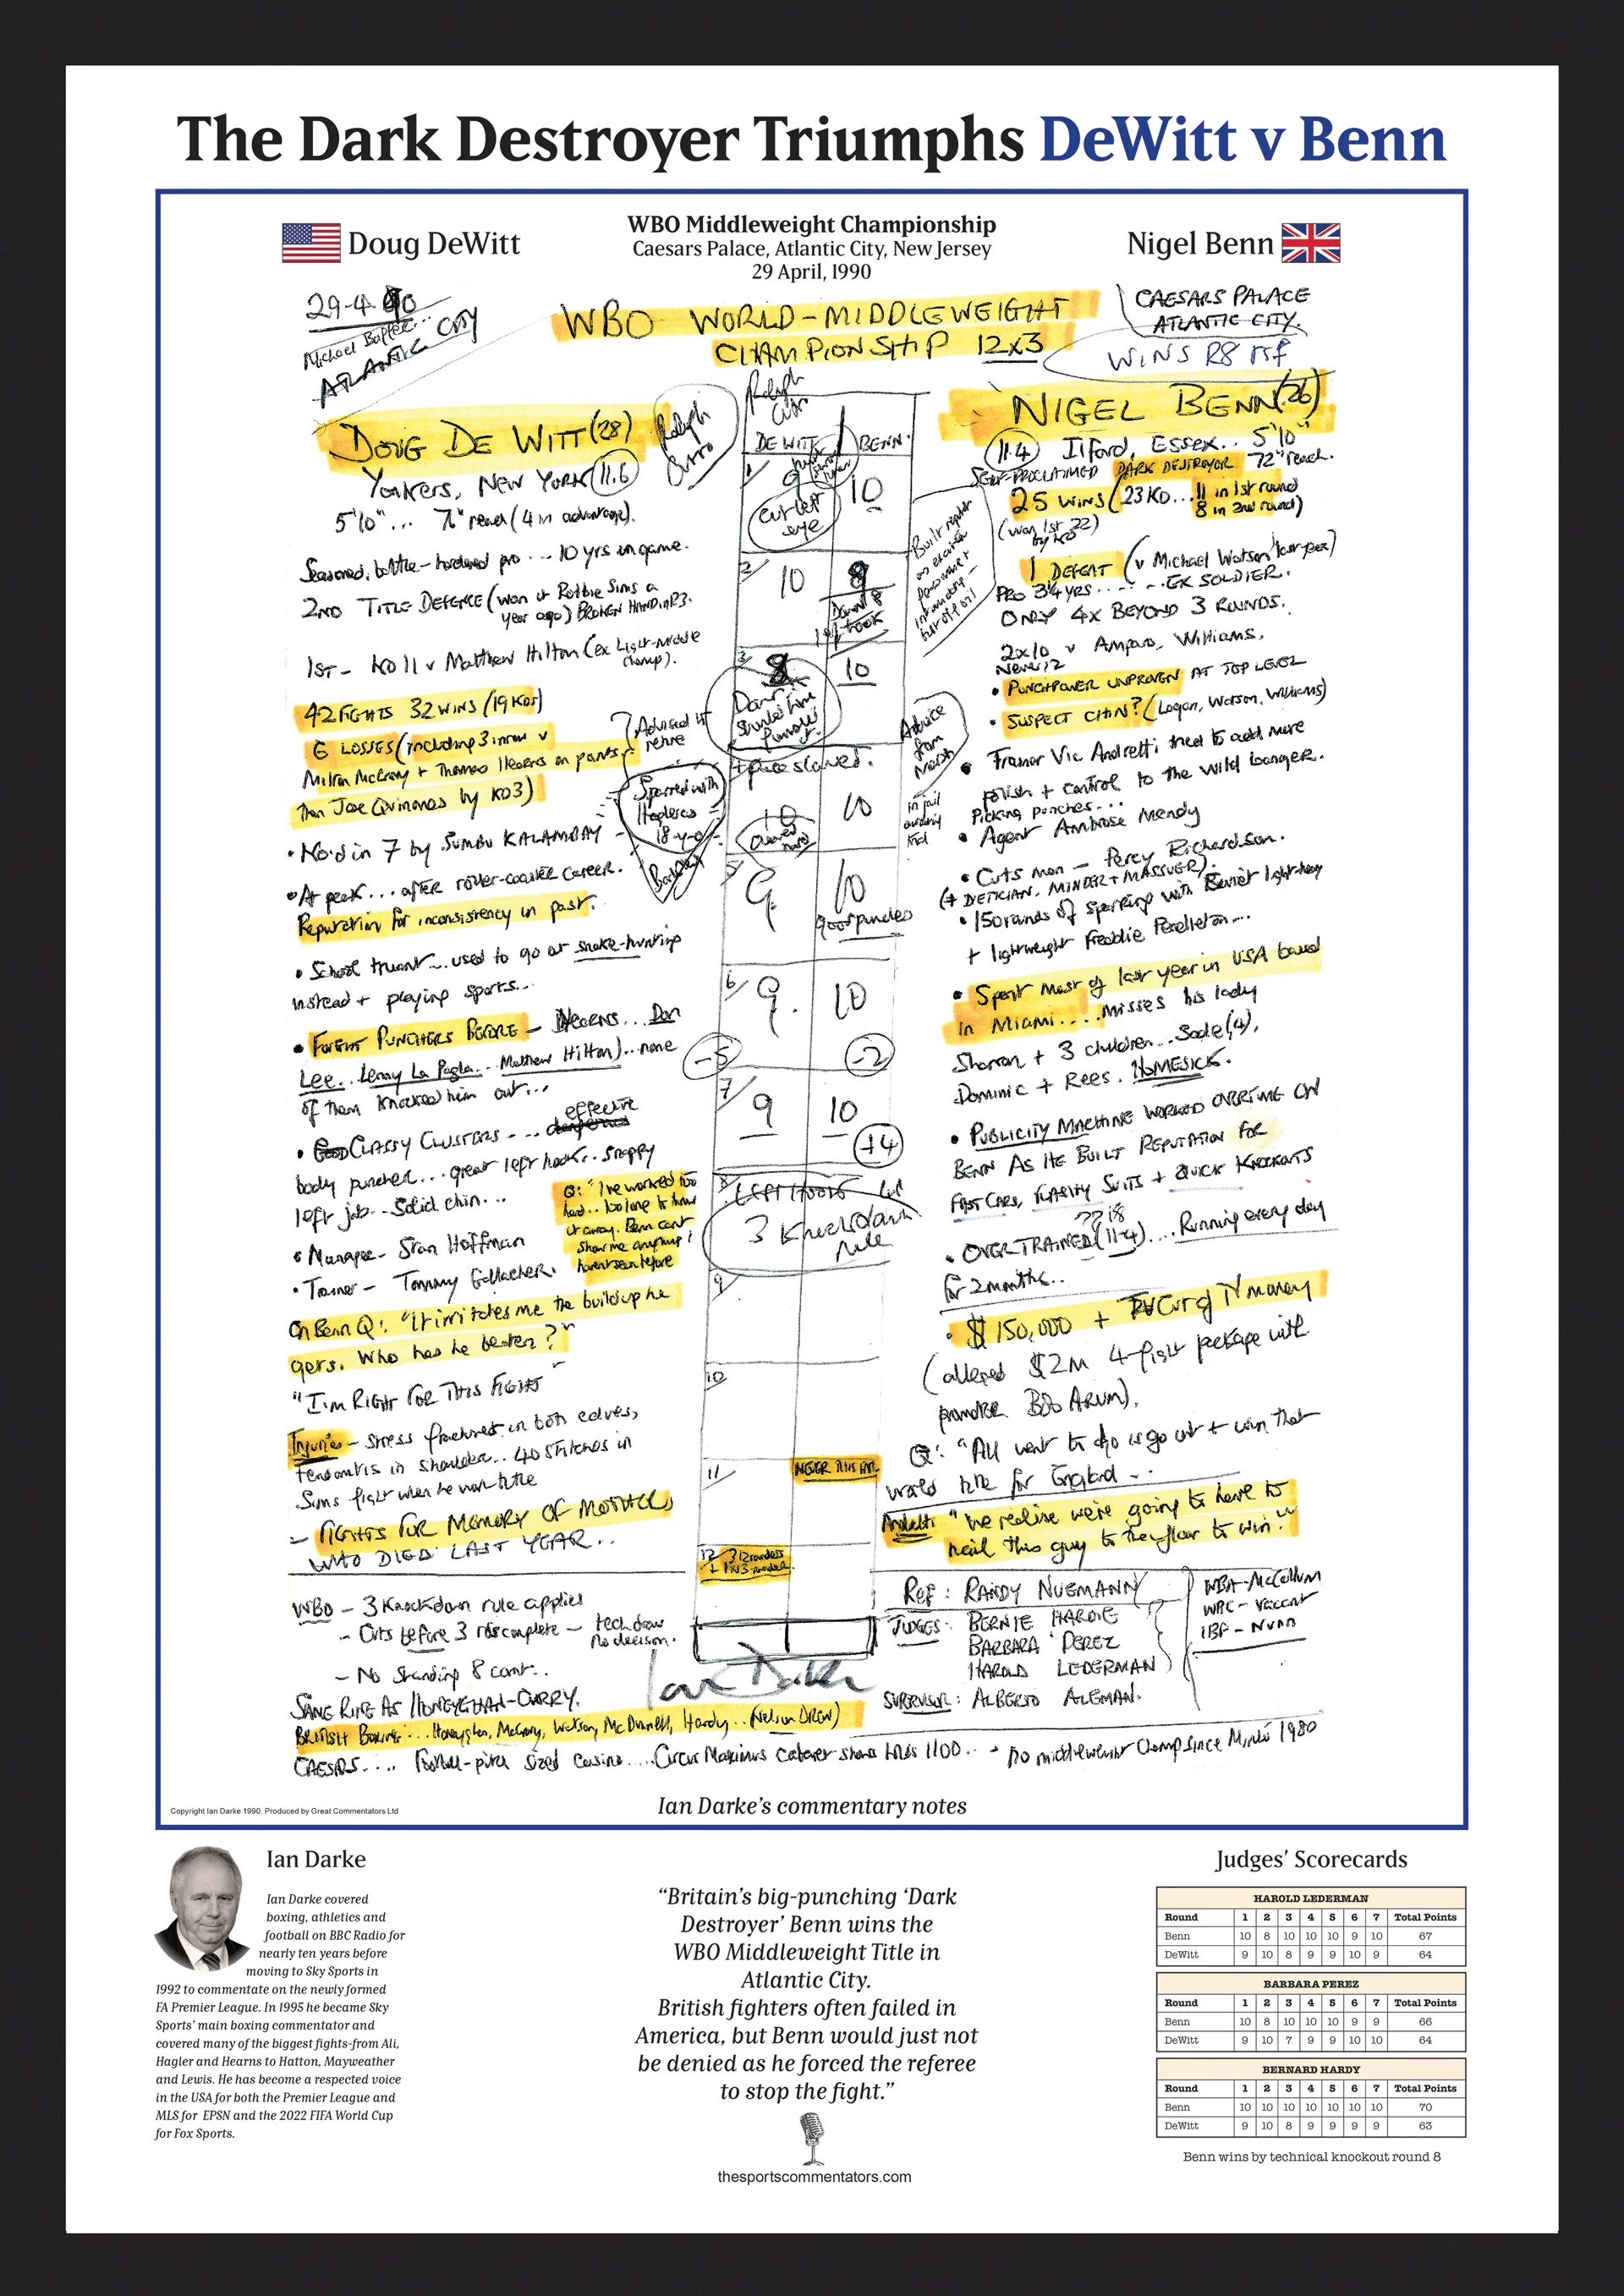 The Dark Destroyer Triumphs DeWitt v Benn
Doug DeWitt
WBO Middleweight Championship
Caesars Palace, Atlantic City, New Jersey
29 April, 1990
Nigel Benn
29-4-90
Michael
ATLANTIC CITY
WBO WORLD-MIDDLEWEIGHT
CHAMPIONSHIP 12x3
CAESARS PALACE
ATLANTIC CITY.
WINS R8 rsf
DOUG DE WITT (28)
Yonkers, NEW YORK 11.6
5'10"... reach (4 in advantage).
Seasoned, battle-hardened pro... 10 yrs in game.
2ND TITLE DEFENCE (won v Robbie Sims a
year ago) BROKEN HAND in R3.
1ST - KO 11 v Matthew Hilton (ex Light-middle
champ).
42 FIGHTS 32 WINS (19 KOs)
6 LOSSES (including 3 in row v
Milton McCrory + Thomas Hearns on points
Then Jose Quinones by KO3)
Advised to
retire
• KO'd in 7 by SUMBU KALAMBAY
Sparred with
Hagler as
18-y-o
• At peak... after roller-coaster career.
Reputation for inconsistency in past.
• School truant... used to go at snake-hunting
instead + playing sports...
• FOUGHT PUNCHERS BEFORE - HEARNS... Don
Lee.. Lenny La Paglia... Matthew Hilton)... none
of them knocked him out...
• CLASSY CLUSTERS... effective
body puncher... great left hook.. snappy
left jab.. Solid chin...
Q: "I've worked too
hard.. too long to throw
it away. Benn can't
show me anything I
haven't seen before
• Manager - Stan Hoffman
• Trainer - Tommy Gallagher.
On Benn Q: "It irritates me the build up he
gets. Who has he beaten?"
"I'M RIGHT FOR THIS FIGHT"
Injuries - stress fractures in both calves,
tendonitis in shoulder.. 40 stitches in
Sims fight when he won title
- FIGHTS FOR MEMORY OF MOTHER
WHO DIED LAST YEAR..
WBO - 3 Knockdown rule applies
- Cuts before 3 rds complete - tech draw
No decision.
- No standing 8 count..
SAME RING AS HONEYGHAN-CURRY.
DE WITT BENN
1 9 10
cut left
eye
2 10 8
Down 8
left hook
3 8 10
Down
+ pace slowed.
10 10
5 9 10
good punches
6 9 10
-5 -2
7 9 10
+4
8
3 Knockdown
rule
9
10
11 NEVER THIS FAR
12 3 12 rounders
NIGEL BENN (26)
11.4 Ilford, Essex.. 5'10"
SELF-PROCLAIMED DARK DESTROYER 72" reach.
25 WINS (23 KO... 11 in 1st round
8 in 2nd round)
(won 1st 22
by KO)
1 DEFEAT (v Michael Watson last year)
PRO 3¼ yrs...... EX SOLDIER.
ONLY 4x BEYOND 3 ROUNDS.
2x10 v Amparo, Williams.
Never 12
• PUNCHPOWER UNPROVEN AT TOP LEVEL
• SUSPECT CHIN? (Logan, Watson, Williams)
• Trainer Vic Andretti tried to add more
polish + control to the wild banger.
Picking punches...
Advice
from
in jail
awaiting
trial
• Agent Ambrose Mendy
• Cuts man - Percy Richardson.
(+ DIETICIAN, MINDER + MASSUER).
• 150 rounds of sparring with light-heavy
+ lightweight Freddie Pendleton...
• Spent most of last year in USA based
in Miami.... misses his lady
Sharron + 3 children.. Sade (4),
Dominic + Rees. HOMESICK.
• PUBLICITY MACHINE WORKED OVERTIME ON
BENN AS HE BUILT REPUTATION FOR
FAST CARS, FLASHY SUITS + QUICK KNOCKOUTS
• OVERTRAINED (11-4).... Running every day
for 2 months..
• $150,000 + Cut of TV money
(alleged $2M 4-fight package with
promoter BOB ARUM).
Q: "All want to do is go out + win that
world title for England...
Andretti: "We realise we're going to have to
nail this guy to the floor to win"
REF: RANDY NUEMANN
JUDGES: BERNIE HARDIE
BARBARA PEREZ
HAROLD LEDERMAN
SUPERVISOR: ALBERTO ALEMAN.
WBA - McCallum
WBC - Vacant
IBF - NUNN
Ian Darke
BRITISH BOXING... Honeyghan, McCrory, Watson, McDonnell, Hardy.. (Nelson DREW)
CAESARS.... Football-pitch sized casino..... Circus Maximus cabaret shows holds 1100... no middleweight champ since Minter 1980
Copyright Ian Darke 1990. Produced by Great Commentators Ltd
Ian Darke's commentary notes
Ian Darke
Ian Darke covered
boxing, athletics and
football on BBC Radio for
nearly ten years before
moving to Sky Sports in
1992 to commentate on the newly formed
FA Premier League. In 1995 he became Sky
Sports' main boxing commentator and
covered many of the biggest fights-from Ali,
Hagler and Hearns to Hatton, Mayweather
and Lewis. He has become a respected voice
in the USA for both the Premier League and
MLS for EPSN and the 2022 FIFA World Cup
for Fox Sports.
"Britain's big-punching 'Dark
Destroyer' Benn wins the
WBO Middleweight Title in
Atlantic City.
British fighters often failed in
America, but Benn would just not
be denied as he forced the referee
to stop the fight."
thesportscommentators.com
Judges' Scorecards
HAROLD LEDERMAN
Round 1 2 3 4 5 6 7 Total Points
Benn 10 8 10 10 10 9 10 67
DeWitt 9 10 8 9 9 10 9 64
BARBARA PEREZ
Round 1 2 3 4 5 6 7 Total Points
Benn 10 8 10 10 10 9 9 66
DeWitt 9 10 7 9 9 10 10 64
BERNARD HARDY
Round 1 2 3 4 5 6 7 Total Points
Benn 10 10 10 10 10 10 10 70
DeWitt 9 10 8 9 9 9 9 63
Benn wins by technical knockout round 8